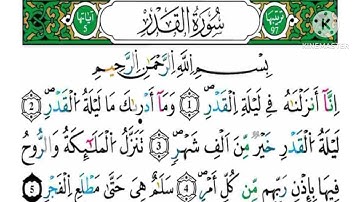 ترتيبها 97 سُورَةُ الْقَدْرِ آياتها 5
KINEMASTER
بِسْمِ اللَّهِ الرَّحْمَٰنِ الرَّحِيمِ
إِنَّا أَنزَلْنَٰهُ فِي لَيْلَةِ الْقَدْرِ 1 وَمَا أَدْرَىٰكَ مَا لَيْلَةُ الْقَدْرِ 2
لَيْلَةُ الْقَدْرِ خَيْرٌ مِّنْ أَلْفِ شَهْرٍ 3 تَنَزَّلُ الْمَلَٰٓئِكَةُ وَالرُّوحُ
فِيهَا بِإِذْنِ رَبِّهِم مِّن كُلِّ أَمْرٍ 4 سَلَٰمٌ هِيَ حَتَّىٰ مَطْلَعِ الْفَجْرِ 5